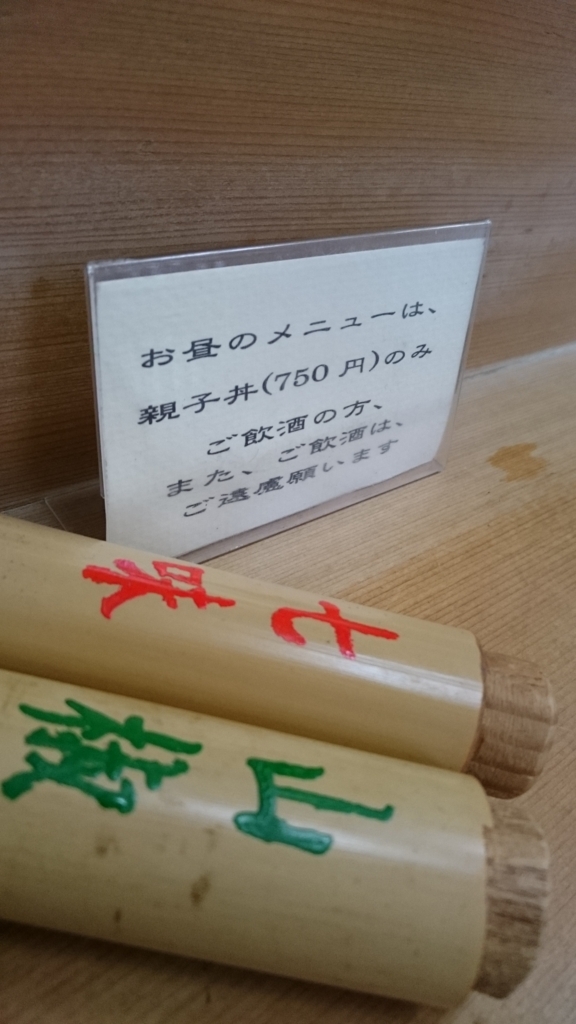 お昼のメニューは、
親子丼(750円)のみ
ご飲酒の方、
また、ご飲酒は、
ご遠慮願います
七味
山椒